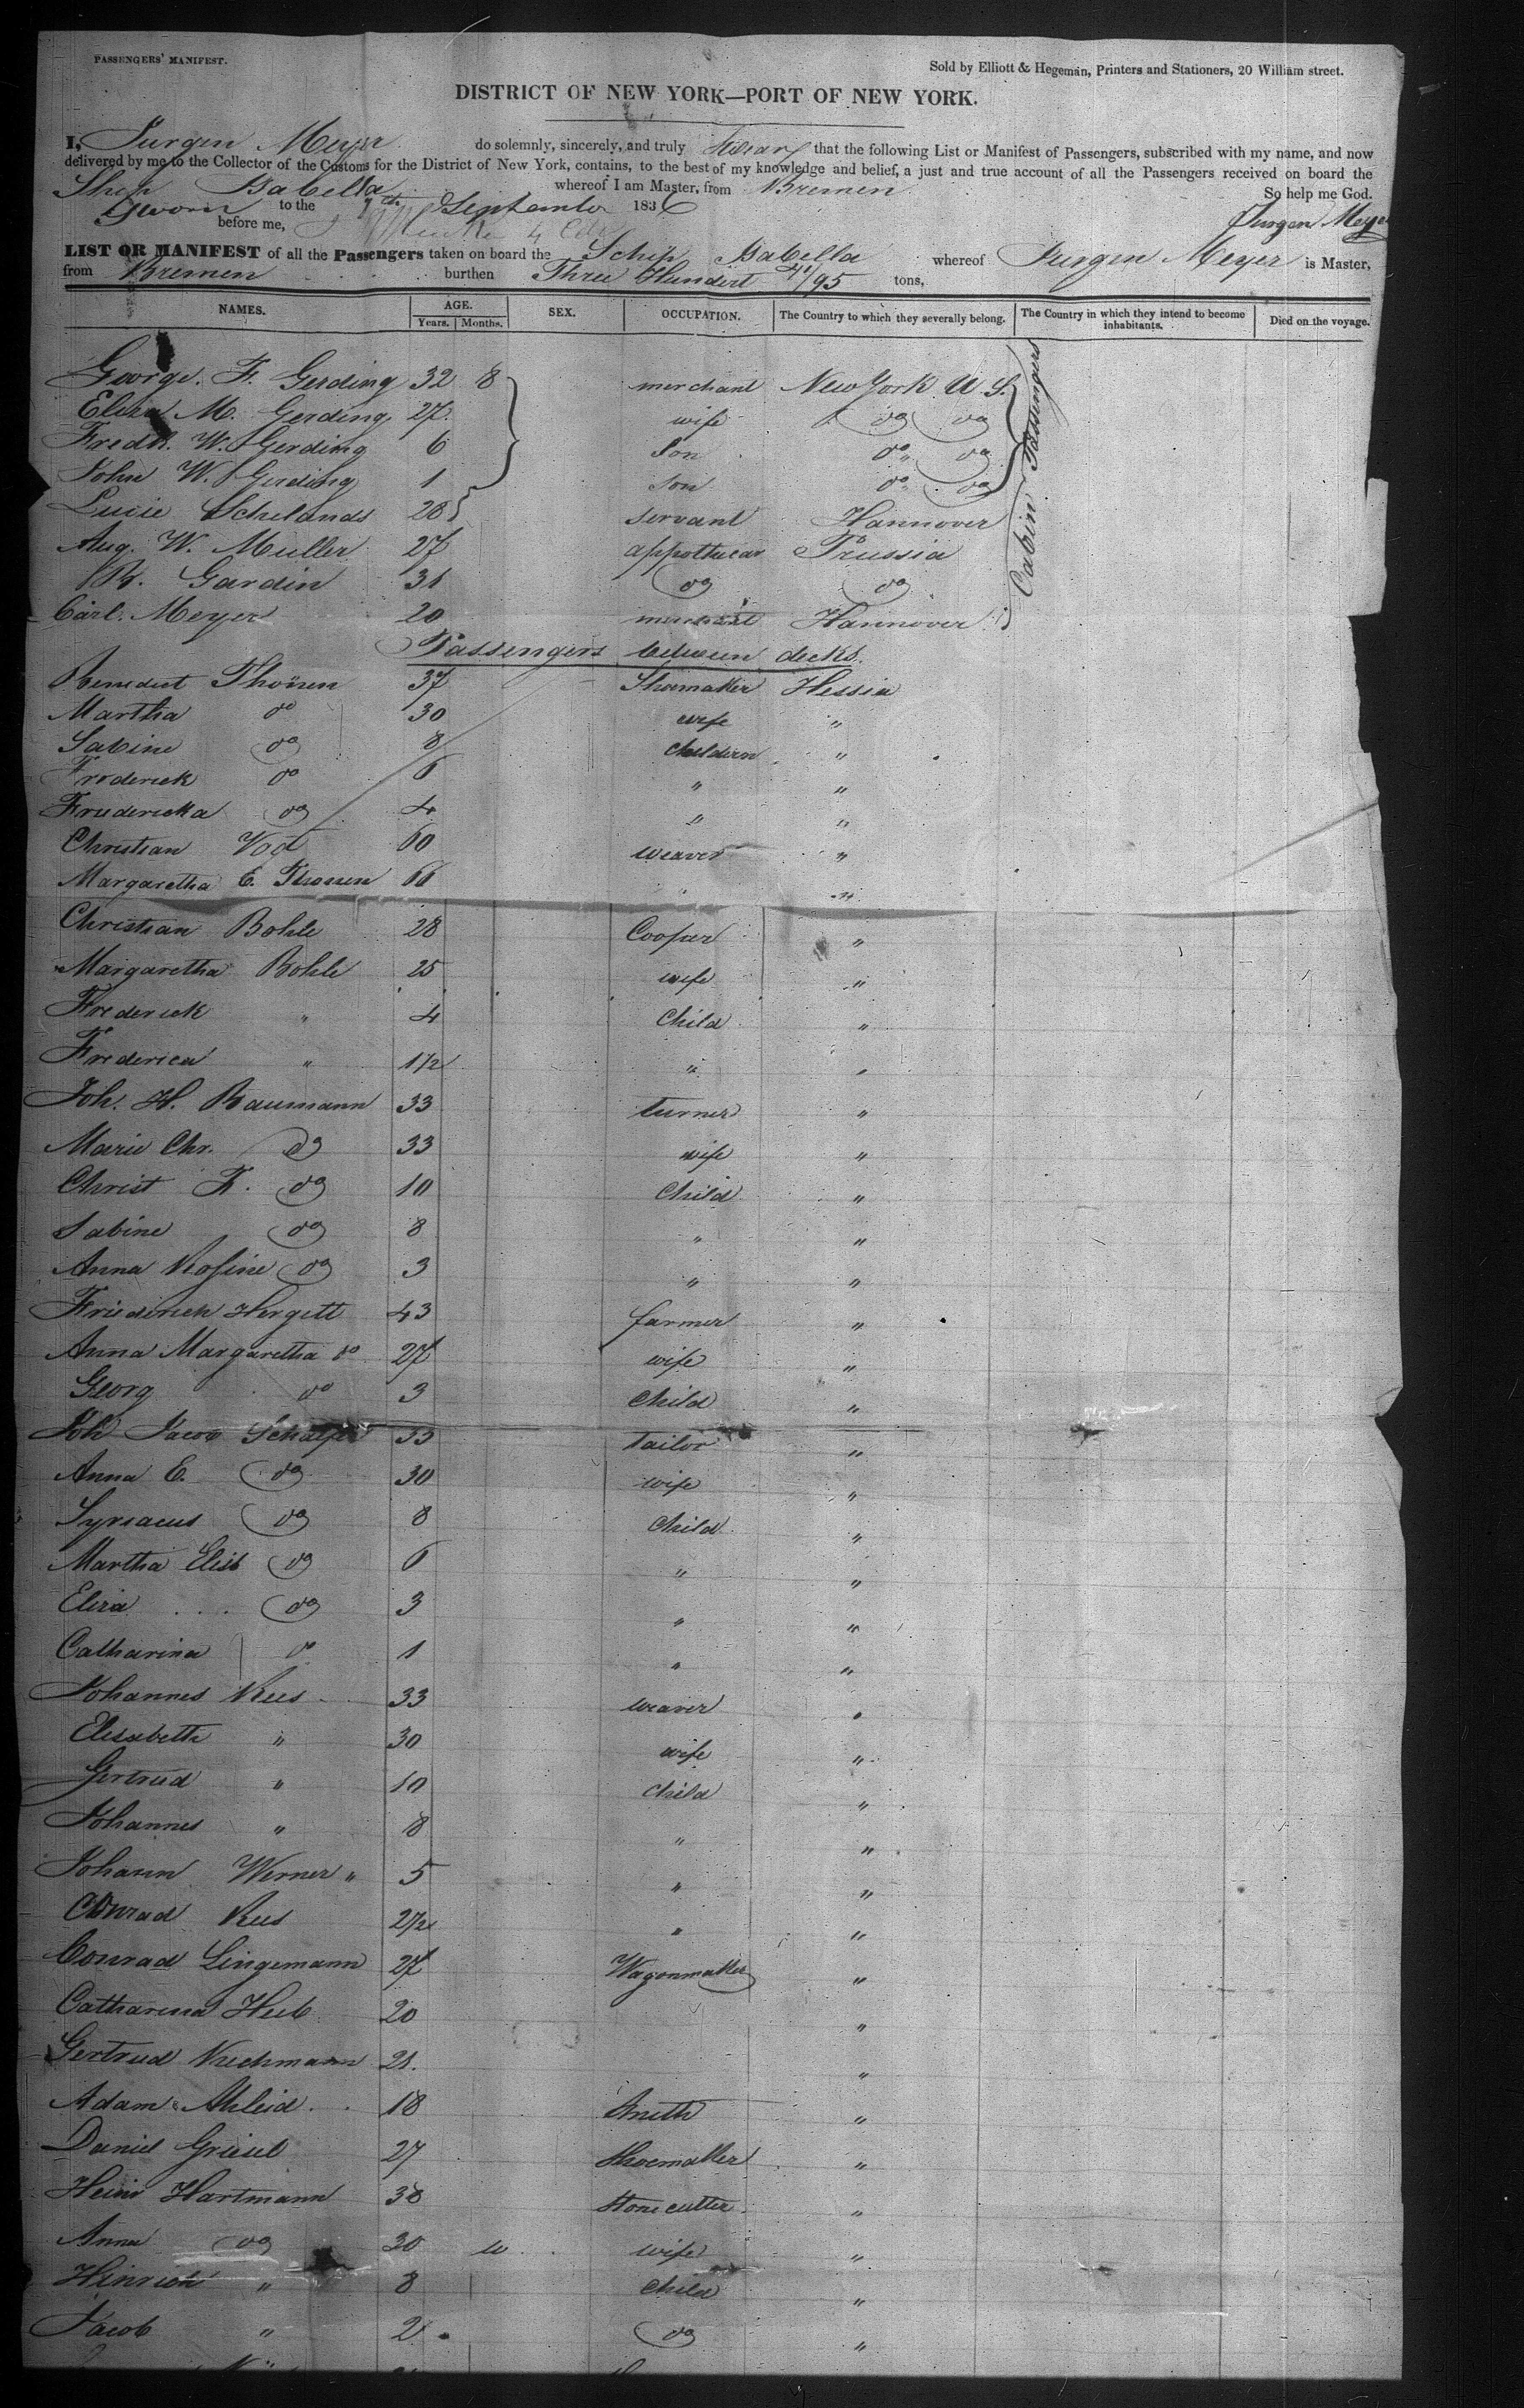 PASSENGERS' MANIFEST.
Sold by Elliott & Hegeman, Printers and Stationers, 20 William street.
DISTRICT OF NEW YORK—PORT OF NEW YORK.
I, Jurgen Meyer do solemnly, sincerely, and truly Swear that the following List or Manifest of Passengers, subscribed with my name, and now
delivered by me to the Collector of the Customs for the District of New York, contains, to the best of my knowledge and belief, a just and true account of all the Passengers received on board the
Ship Isabella whereof I am Master, from Bremen So help me God.
Sworn to the 7th September 1836 Jurgen Meyer
before me,
LIST OR MANIFEST of all the Passengers taken on board the Schip Isabella whereof Jurgen Meyer is Master,
from Bremen burthen Three Hundert 41/95 tons,
NAMES. AGE. SEX. OCCUPATION. The Country to which they severally belong. The Country in which they intend to become inhabitants. Died on the voyage.
Years. Months.
George. F. Gerding 32 8 merchant New York U. S.
Eliza M. Gerding 27. wife do do
Fredk. W. Gerding 6 Son do do
John W. Gerding 1 son do do
Lucie Schelands 28 servant Hannover
Aug. W. Muller 27 appothecar Prussia
R. Gardin 31 do do
Carl. Meyer 20 merchant Hannover
Cabin Passengers
Passengers between decks.
Benedict Thönen 37 Shoemaker Hessia
Martha do 30 wife "
Sabine do 8 children "
Froderick do 6 " "
Frudericka do 4 " "
Christian Vod 60 weaver "
Margaretha E. Thonen 66 " "
Christian Bohle 28 Cooper "
Margaretha Bohle 25 wife "
Frederick " 4 Child "
Frederica " 1 1/2 " "
Joh. H. Baumann 33 turner "
Marie Chr. do 33 wife "
Christ F. do 10 Child "
Sabine do 8 " "
Anna Rosine do 3 " "
Friederich Hergett 43 farmer "
Anna Margaretha do 27 wife "
Georg do 3 Child "
Joh Jacob Schäfer 33 tailor "
Anna E. do 30 wife "
Syriacus do 8 Child "
Martha Elisb do 6 " "
Eliza do 3 " "
Catharina do 1 " "
Johannes Rees 33 weaver "
Elisabeth " 30 wife "
Gertrud " 10 Child "
Johannes " 8 " "
Johann Werner " 5 " "
Conrad Rees 2 1/2 " "
Conrad Lingemann 27 Wagonmaker "
Catharina Heeb 20 "
Gertrud Ruchmann 21. "
Adam Ahleid 18 Smith "
Daniel Griesel 27 Shoemaker "
Heinr Hartmann 38 Stonecutter "
Anna do 30 w wife "
Hinrich " 8 Child "
Jacob " 2 do "